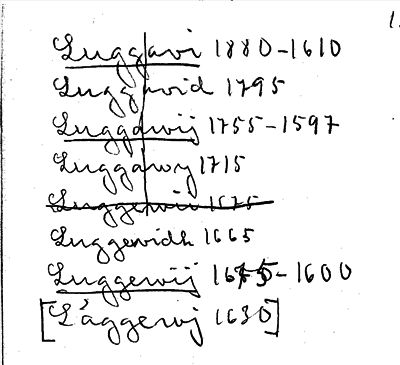 Luggavi 1880-1610
Luggavid 1795
Luggawij 1755-1597
Luggawy 1715
Luggewii 1675
Luggewidh 1665
Luggewij 1675-1600
[Låggewj 1630]